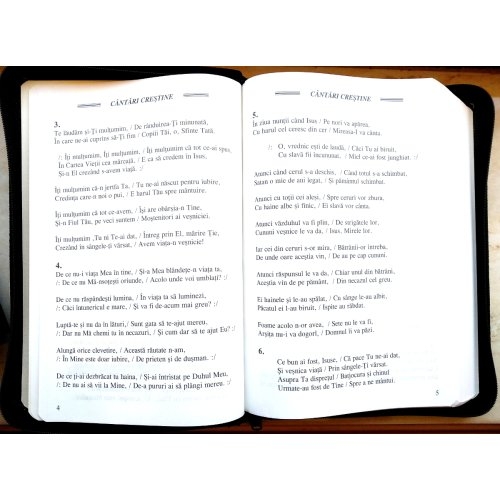 CÂNTĂRI CREȘTINE
3.
Te lăudăm și-Ți mulțumim, / De rânduirea-Ți minunată,
În care ne-ai cuprins să-Ți fim / Copii Tăi, o, Sfinte Tată.
/: Îți mulțumim, Îți mulțumim, / Îți mulțumim că tot ce-ai spus,
În Cartea Vieții cea mărcată, / E ca să credem în Isus,
Și-n El crezând s-avem viață. :/
Îți mulțumim că-n jertfa Ta, / Tu ne-ai născut pentru iubire,
Credința care n-o noi o pui, / E harul Tău spre mântuire.
Îți mulțumim că tot ce-avem, / Își are obârșia-n Tine,
Și-n Fiul Tău, pe veci suntem / Moștenitori ai veșniciei.
Îți mulțumim ,Tu ni Te-ai dat, / Întreg prin El, mărire Ție,
Crezând în sângele-ți vărsat, / Avem viața-n veșnicie!
4.
De ce nu-i viața Mea în tine, / Și-a Mea blândețe-n viața ta,
/: De ce nu Mă-nsoțești oriunde, / Acolo unde voi umblați? :/
De ce nu răspândești lumina, / În viața ta să luminezi,
/: Căci întunericul e mare, / Și va fi de-acum mai greu? :/
Luptă-te și nu da în lături, / Sunt gata să te-ajut mereu,
/: Dar nu Mă chemi tu în necazuri, / Și cum dar să te ajut Eu? :/
Alungă orice clevetire, / Această răutate n-am,
/: În Mine este doar iubire, / De prieten și de dușman. :/
De ce ți-ai dezbrăcat tu haina, / Și-ai întristat pe Duhul Meu,
/: De nu ai să vii la Mine, / De-a pururi ai să plângi mereu. :/
4
CÂNTĂRI CREȘTINE
5.
În ziua nunții când Isus / Pe nori va apărea,
Cu harul cel ceresc din cer / Mireasa-I va cânta.
/: O, vrednic ești de laudă, / Căci Tu ai biruit,
Cu slavă fii încununat, / Miel ce-ai fost junghiat. :/
Atunci când cerul s-a deschis, / Când totul s-a schimbat,
Satan o mie de ani legat, / Și pământul schimbat.
Atunci cu toții cei aleși, / Spre ceruri vor zbura,
Cu haine albe și finic, / Ei slavă vor cânta.
Atunci văzduhul va fi plin, / De strigătele lor,
Cununi veșnice le va da, / Isus, Mirele lor.
Iar cei din ceruri s-or mira, / Bătrâni-or întreba,
De unde oare aceștia vin, / De au pe cap cununi.
Atunci răspunsul le va da, / Chiar unul din bătrâni,
Aceștia vin de pe pământ, / Din necazul cel mare.
Ei hainele și le-au spălat, / Cu sânge le-au albit,
Păcatul ei l-au biruit, / Ispite au răbdat.
Foame acolo n-or avea, / Sete nu le va fi,
Arșița nu-i va dogorî, / Domnul îi va păzi.
6.
Ce bun ai fost, Isuse, / Că pace Tu ne-ai dat,
Și veșnica viață / Prin sângele-Ți vărsat.
Asupra Ta disprețul / Batjocura și chinul
Urmate-au fost de Tine / Spre a ne mântui.
5